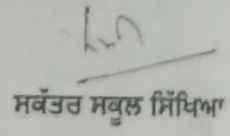 ਸਕੱਤਰ ਸਕੂਲ ਸਿੱਖਿਆ